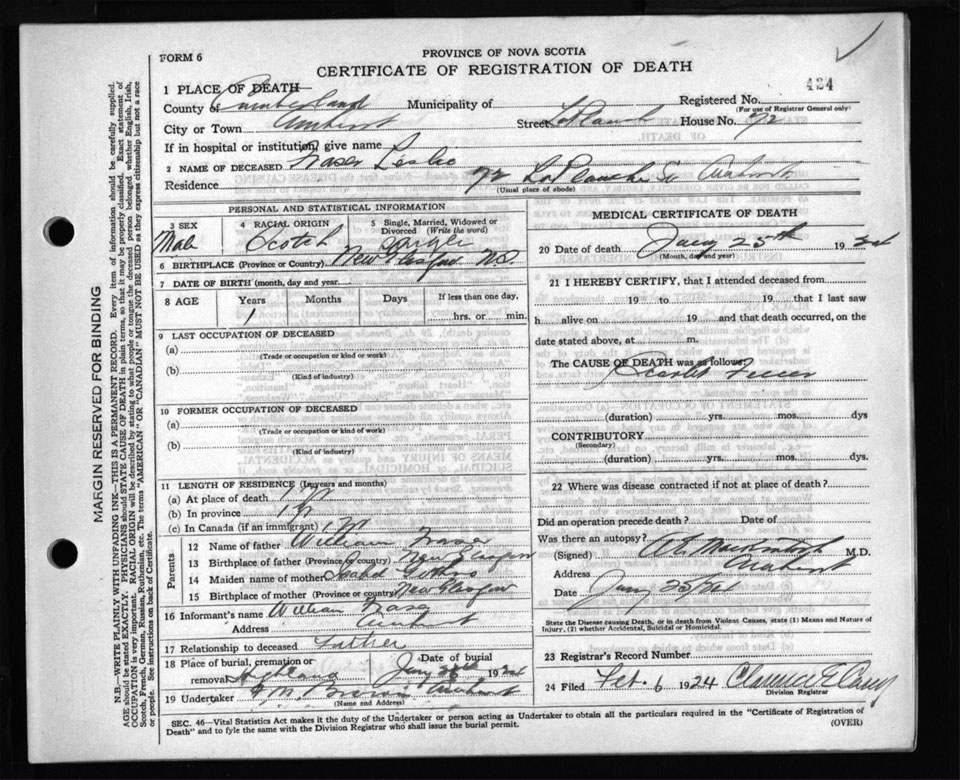 FORM 6
PROVINCE OF NOVA SCOTIA
CERTIFICATE OF REGISTRATION OF DEATH
424
1 PLACE OF DEATH—
County of Cumberland Municipality of Registered No.
(For use of Registrar General only)
City or Town Amherst Street LaPlanche House No. 72
If in hospital or institution, give name
2 NAME OF DECEASED Fraser Leslie
Residence 72 LaPlanche St Amherst
(Usual place of abode)
PERSONAL AND STATISTICAL INFORMATION
3 SEX Male
4 RACIAL ORIGIN Scotch
5 Single, Married, Widowed or Divorced (Write the word) Single
6 BIRTHPLACE (Province or Country) New Glasgow N.S.
7 DATE OF BIRTH (month, day and year)
8 AGE Years Months Days If less than one day,
1 hrs. or min.
9 LAST OCCUPATION OF DECEASED
(a)
(Trade or occupation or kind or work)
(b)
(Kind of industry)
10 FORMER OCCUPATION OF DECEASED
(a)
(Trade or occupation or kind or work)
(b)
(Kind of industry)
11 LENGTH OF RESIDENCE (In years and months)
(a) At place of death 1 yr
(b) In province 1 yr
(c) In Canada (if an immigrant) 1 yr
Parents
12 Name of father William Fraser
13 Birthplace of father (Province or country) New Glasgow
14 Maiden name of mother
15 Birthplace of mother (Province or country) New Glasgow
16 Informant's name William Fraser
Address Amherst
17 Relationship to deceased Father
18 Place of burial, cremation or removal Highland Date of burial Jany 1924
19 Undertaker Brown Amherst
(Name and Address)
MEDICAL CERTIFICATE OF DEATH
20 Date of death Jany 25th 1924
(Month, day and year)
21 I HEREBY CERTIFY, that I attended deceased from
19 to 19 that I last saw
h alive on 19 and that death occurred, on the
date stated above, at m.
The CAUSE OF DEATH was as follows:
Scarlet Fever
(duration) yrs. mos. dys
CONTRIBUTORY
(Secondary)
(duration) yrs. mos. dys
22 Where was disease contracted if not at place of death?
Did an operation precede death? Date of
Was there an autopsy?
(Signed) MacKintosh M.D.
Address Amherst
Date Jany 25/24
State the Disease causing Death, or in death from Violent Causes, state (1) Means and Nature of
Injury, (2) whether Accidental, Suicidal or Homicidal.
23 Registrar's Record Number
24 Filed Feb. 6 1924 Clarence E
Division Registrar
SEC. 46—Vital Statistics Act makes it the duty of the Undertaker or person acting as Undertaker to obtain all the particulars required in the "Certificate of Registration of
Death" and to fyle the same with the Division Registrar who shall issue the burial permit.
(OVER)
MARGIN RESERVED FOR BINDING
N.B.—WRITE PLAINLY WITH UNFADING INK—THIS IS A PERMANENT RECORD. Every item of information should be carefully supplied.
AGE should be stated EXACTLY. PHYSICIANS should STATE CAUSE OF DEATH in plain terms, so that it may be properly classified. Exact statement of
OCCUPATION is very important. RACIAL ORIGIN will be described by stating to what people or tongue the deceased person belonged whether English, Irish,
Scotch, French, German, Russian, Ruthenian, etc. The terms "AMERICAN" OR "CANADIAN" MUST NOT BE USED as they express citizenship but not a race
or people. See instructions on back of Certificate.